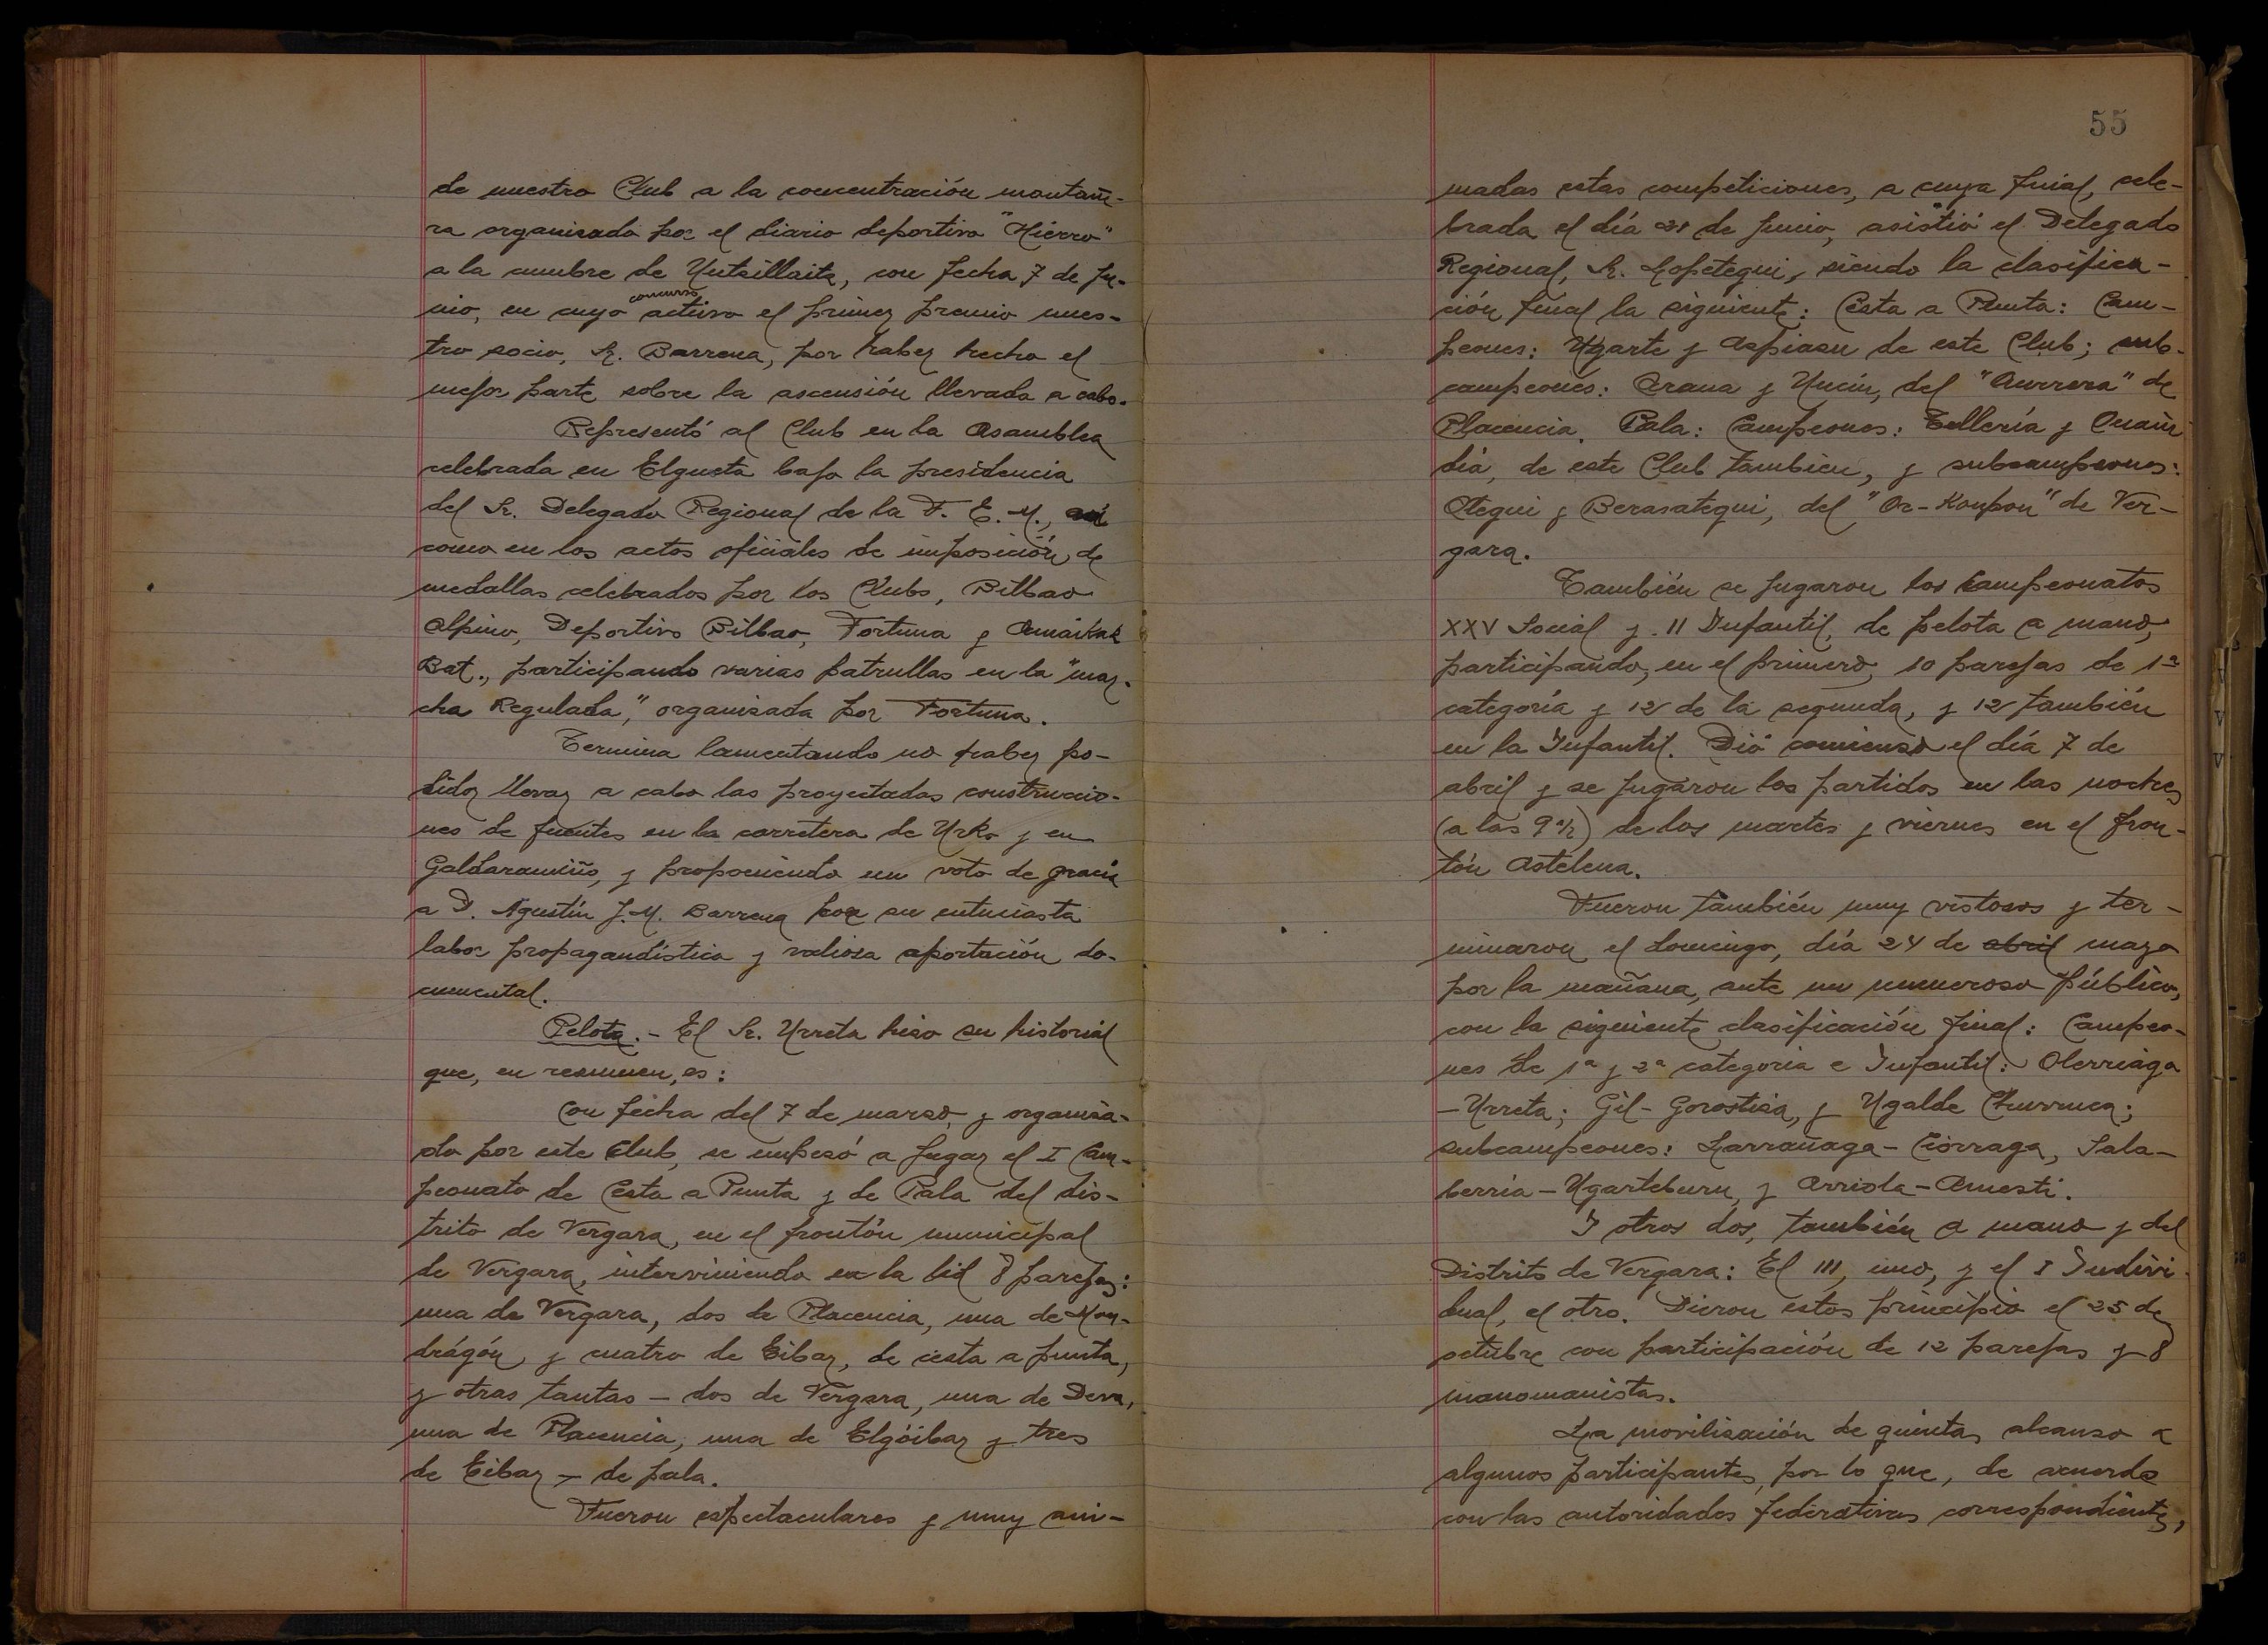 de nuestro Club a la concentración montañe-
ra organizada por el diario deportivo "Hierro"
a la cumbre de Untzillaitz, con fecha 7 de ju-
nio, en cuyo concurso obtuvo el primer premio nues-
tro socio, Sr. Barrena, por haber hecho el
mejor parte sobre la ascensión llevada a cabo.
Representó al Club en la Asamblea
celebrada en Elgueta bajo la presidencia
del Sr. Delegado Regional de la F. E. M., así
como en los actos oficiales de imposición de
medallas celebrados por los Clubs, Bilbao
Alpino, Deportivo Bilbao, Fortuna y Amaikak
Bat., participando varias patrullas en la "mar-
cha Regulada," organizada por Fortuna.
Termina lamentando no haber po-
dido llevar a cabo las proyectadas construccio-
nes de fuentes en la carretera de Urko y en
Galdaramiño, y proponiendo un voto de gracia
a D. Agustín J.M. Barrena por su entusiasta
labor propagandística y valiosa aportación do-
cumental.
Pelota.- El Sr. Urreta hizo su historial
que, en resumen, es:
Con fecha del 7 de marzo, y organiza-
do por este Club, se empezó a jugar el I Cam-
peonato de Cesta a Punta y de Pala del dis-
trito de Vergara, en el frontón municipal
de Vergara, interviniendo en la lid 8 parejas:
una de Vergara, dos de Placencia, una de Mon-
drágón, y cuatro de Eibar, de cesta a punta,
y otras tantas - dos de Vergara, una de Deva,
una de Placencia, una de Elgóibar y tres
de Eibar - de pala.
Fueron espectaculares y muy ani-
55
madas estas competiciones, a cuya final, cele-
brada el día 21 de junio, asistió el Delegado
Regional, Sr. Lopetegui, siendo la clasifica-
ción final la siguiente: Cesta a Punta: Cam-
peones: Ugarte y Aspiazu de este Club; sub-
campeones: Arana y Uncin, del "Aurrera" de
Placencia. Pala: Campeones: Tellería y Onain
día, de este Club también, y subcampeones:
Otegui y Berasategui, del "Or-Konpon" de Ver-
gara.
También se jugaron los Campeonatos
XXV Social y II Infantil, de pelota a mano,
participando, en el primero, 10 parejas de 1ª
categoría y 12 de la segunda, y 12 también
en la Infantil. Dió comienzo el día 7 de
abril y se jugaron los partidos en las noches
(a las 9 ½) de los martes y viernes en el fron-
tón Astelena.
Fueron también muy vistosos y ter-
minaron el domingo, día 24 de abril mayo
por la mañana, ante un numeroso público,
con la siguiente clasificación final: Campeo-
nes de 1ª y 2ª categoría e Infantil: Olerriaga
-Urreta; Gil-Gorostiza, y Ugalde Churruca;
subcampeones: Larrañaga-Ciorraga, Sala-
berria-Ugarteburu, y Arriola-Amesti.
Y otros dos, también a mano y del
Distrito de Vergara: El III, uno, y el I Indivi-
dual, el otro. Dieron estos principio el 25 de
octubre con participación de 12 parejas y 8
manomanistas.
La movilización de quintas alcanzo a
algunos participantes, por lo que, de acuerdo
con las autoridades federativas correspondientes,